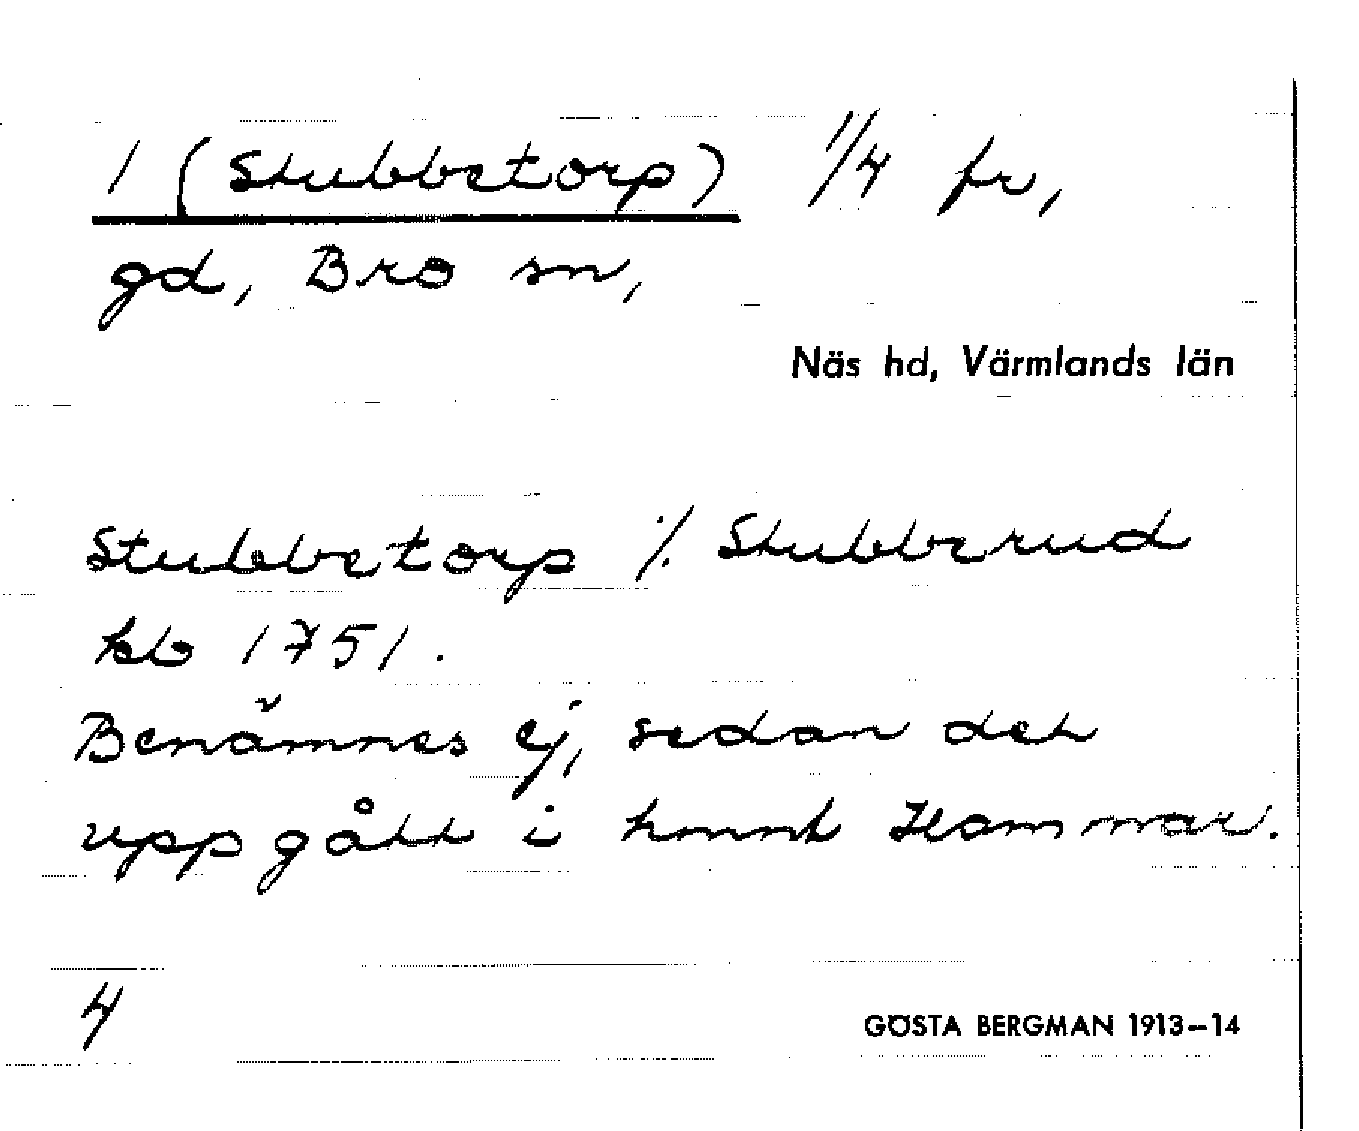 1 (Stubbetorp) 1/4 fr,
gd, Bro sn,
Näs hd, Värmlands län
Stubbetorp ./. Stubberud
kb 1751.
Benämnes ej, sedan det
uppgått i hmnt Hammar.
4
GÖSTA BERGMAN 1913-14